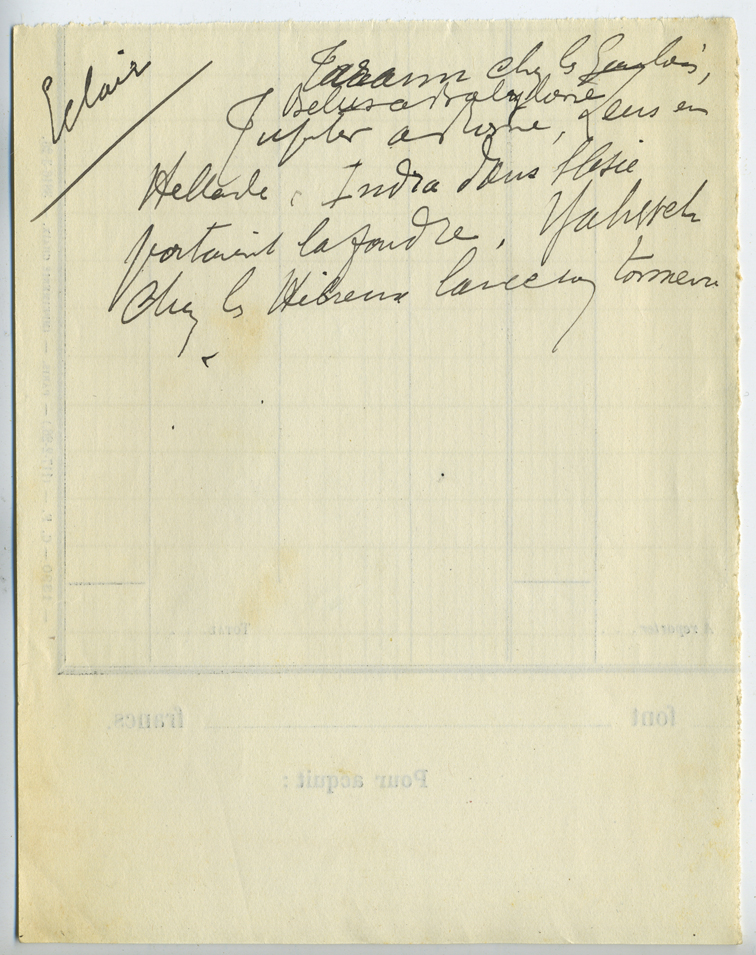 Eclair
Taramm chez les Gaulois,
Belus a Babylone
Jupiter à Rome, Zeus en
Hellade, Indra dans l'Asie
portaient la foudre. Yahweh
chez les Hébreux lance
A reporter.
Total
font francs.
Pour acquit :